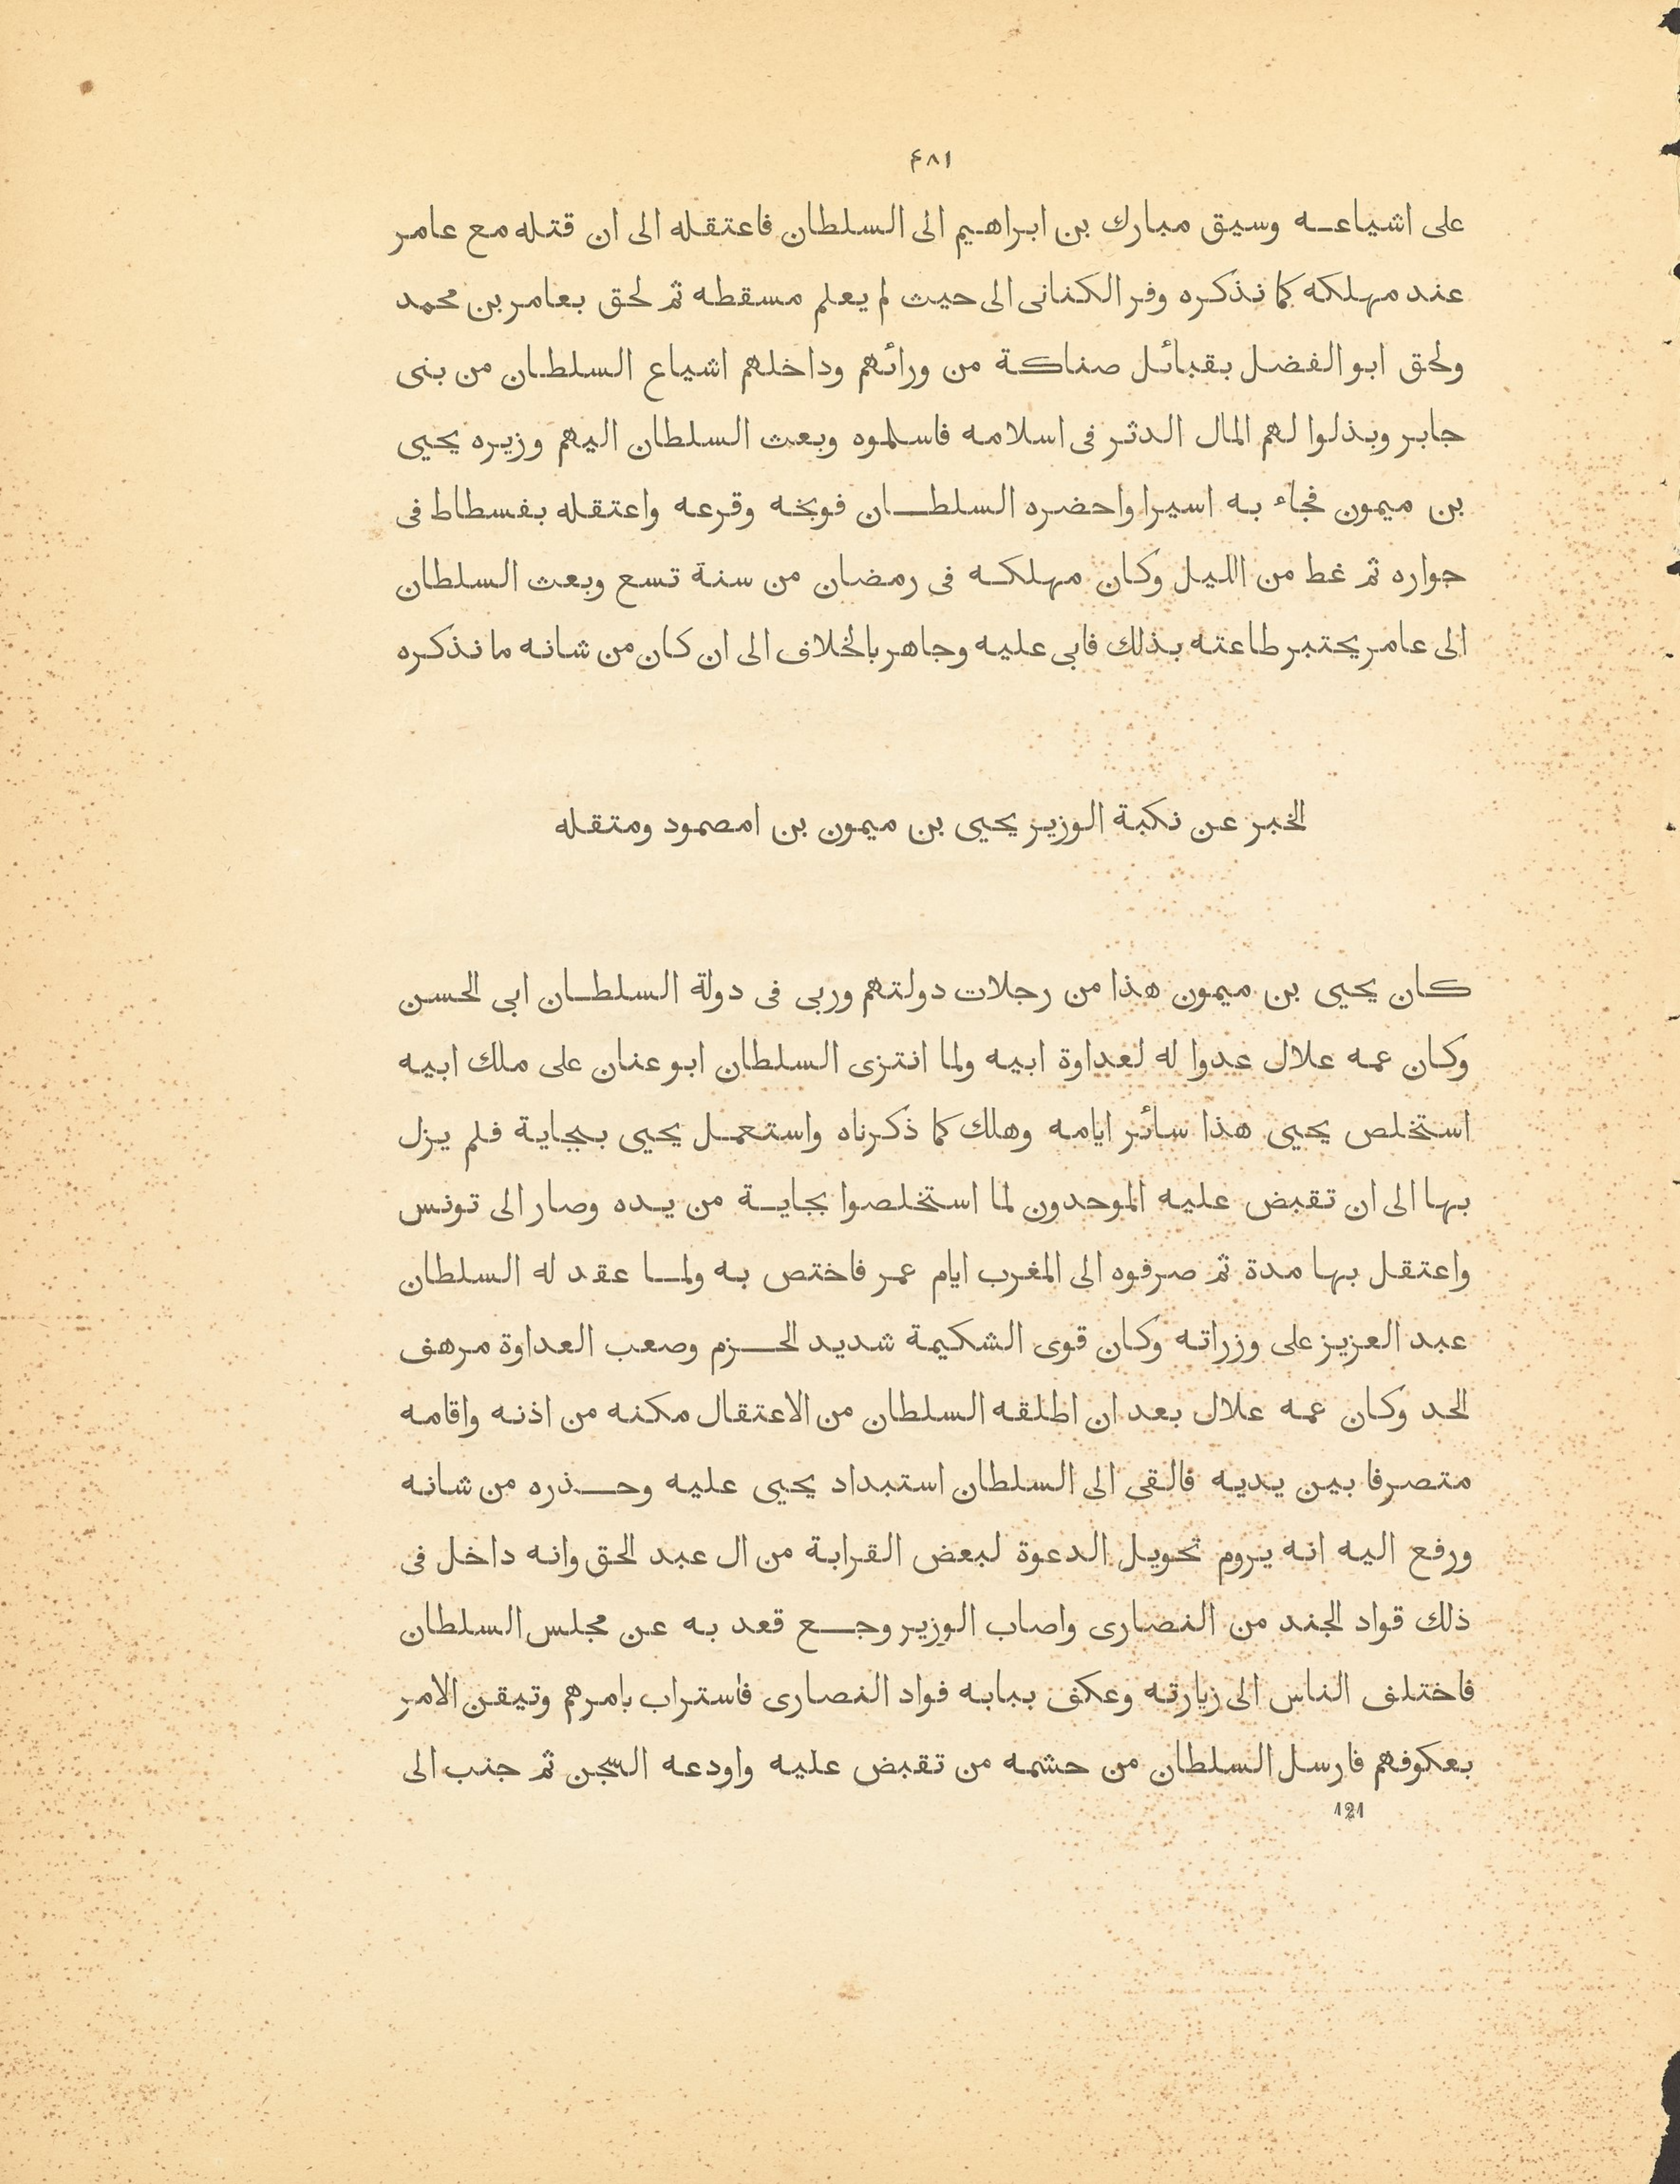 ٤٨١
على اشياعه وسيق مبارك بن ابراهيم الى السلطان فاعتقله الى ان قتله مع عامر
عند مهلكه كما نذكره وفر الكنانى الى حيث لم يعلم مسقطه ثم لحق بعامر بن محمد
ولحق ابو الفضل بقبائل صناكة من ورائهم وداخلهم اشياع السلطان من بنى
جابر وبذلوا لهم المال الدثر فى اسلامه فاسلموه وبعث السلطان اليهم وزيره يحيى
بن ميمون فجاء به اسيرا واحضره السلطان فوبخه وقرعه واعتقله بفسطاط فى
جواره ثم غط من الليل وكان مهلكه فى رمضان من سنة تسع وبعث السلطان
الى عامر يختبر طاعته بذلك فابى عليه وجاهر بالخلاف الى ان كان من شانه ما نذكره
الخبر عن نكبة الوزير يحيى بن ميمون بن امصمود ومتقله
كان يحيى بن ميمون هذا من رجلات دولتهم وربى فى دولة السلطان ابى الحسن
وكان عمه علال عدوا له لعداوة ابيه ولما انتزى السلطان ابو عنان على ملك ابيه
استخلص يحيى هذا سائر ايامه وهلك كما ذكرناه واستعمل يحيى ببجاية فلم يزل
بها الى ان تقبض عليه الموحدون لما استخلصوا بجاية من يده وصار الى تونس
واعتقل بها مدة ثم صرفوه الى المغرب ايام عمر فاختص به ولما عقد له السلطان
عبد العزيز على وزراته وكان قوى الشكيمة شديد الحزم وصعب العداوة مرهف
الحد وكان عمه علال بعد ان اطلقه السلطان من الاعتقال مكنه من اذنه واقامه
متصرفا بين يديه فالقى الى السلطان استبداد يحيى عليه وحذره من شانه
ورفع اليه انه يروم تحويل الدعوة لبعض القرابة من ال عبد الحق وانه داخل فى
ذلك قواد الجند من النصارى واصاب الوزير وجع قعد به عن مجلس السلطان
فاختلف الناس الى زيارته وعكف ببابه فواد النصارى فاستراب بامرهم وتيقن الامر
بعكوفهم فارسل السلطان من حشمه من تقبض عليه واودعه السجن ثم جنب الى
121